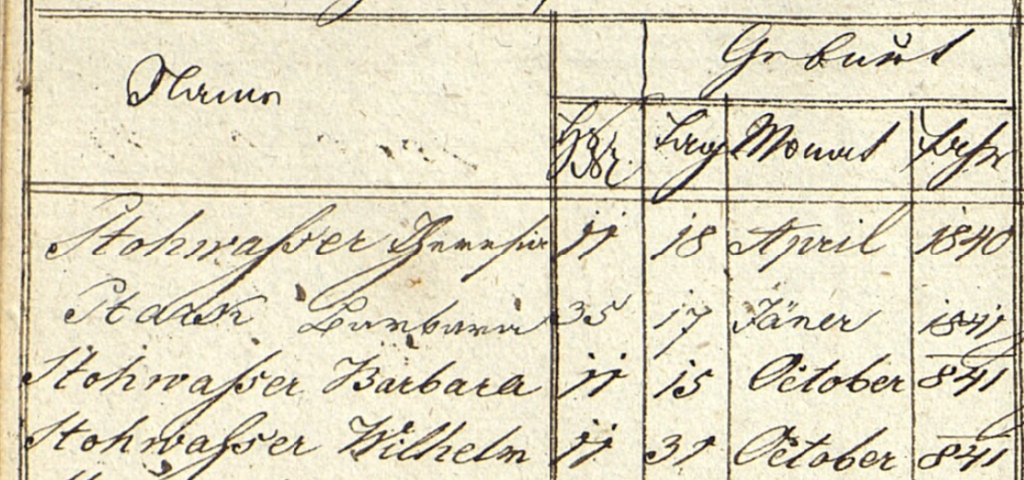 Geburt
Name
Tag Monat Jahr
Stohwaſser Theresia 11 18 April 1840
Stark Barbara 35 17 Jäner 1841
Stohwaſser Barbara 11 15 October 841
Stohwaſser Wilhelm 11 31 October 841